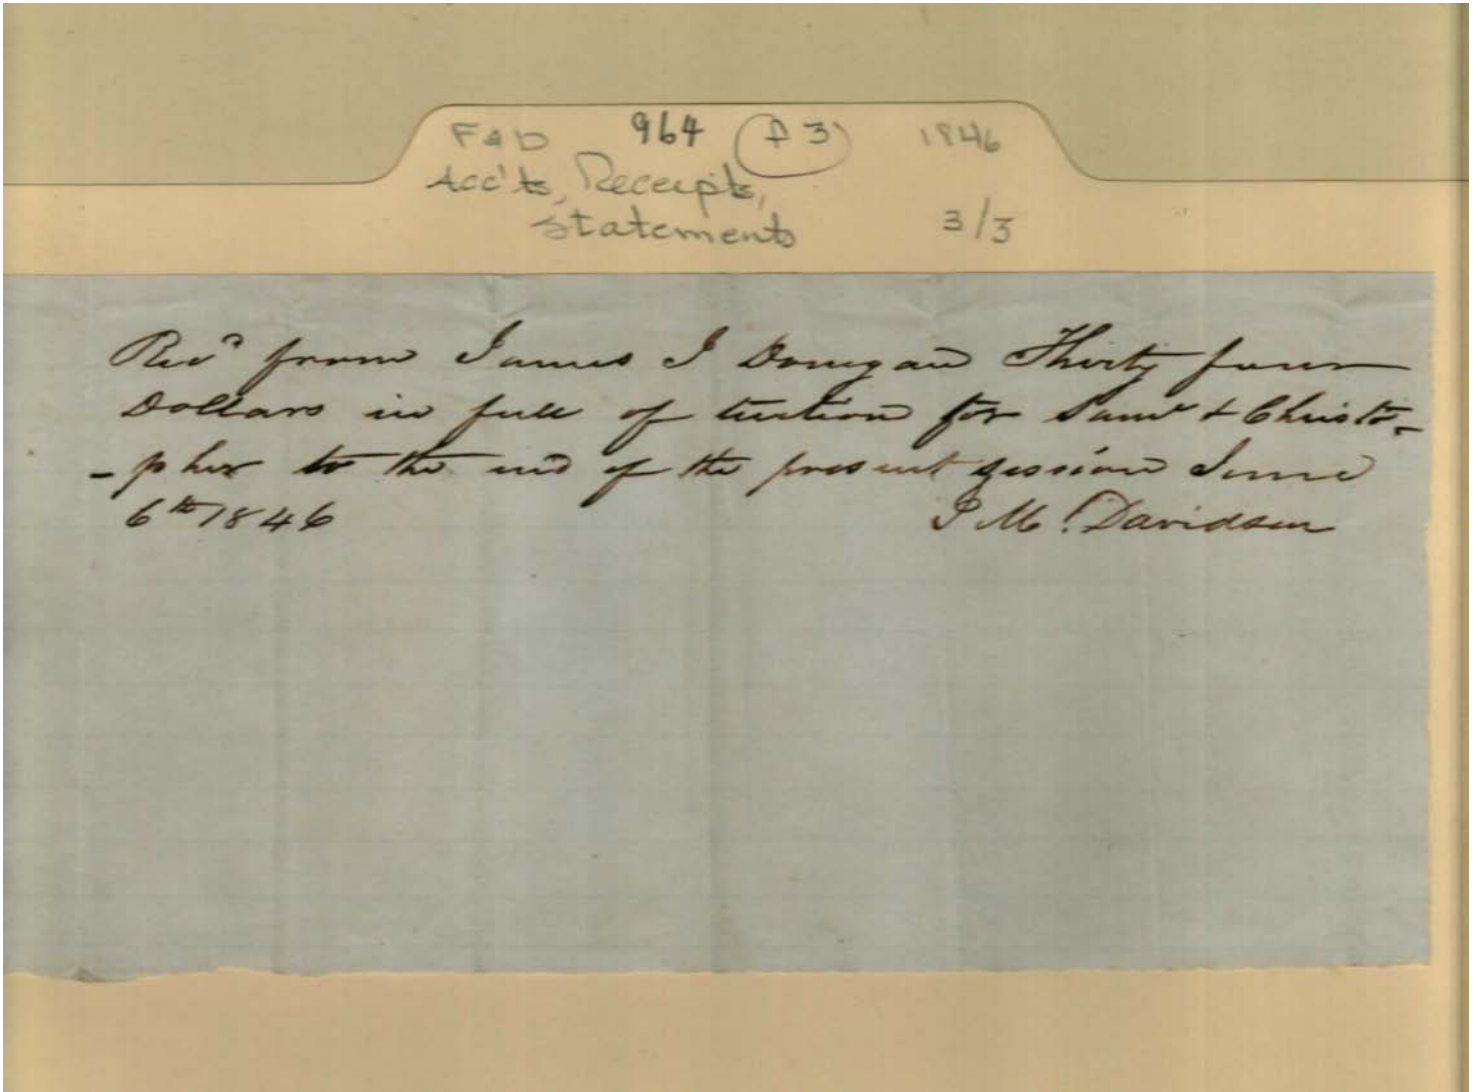 F&D 964 (A 3) 1846
Acc'ts, Receipts,
Statements 3/3
Recd from James J Donegan Thirty four
Dollars in full of tuition for Saml & Christo-
-pher to the end of the present session June
6th 1846 J M. Davidson